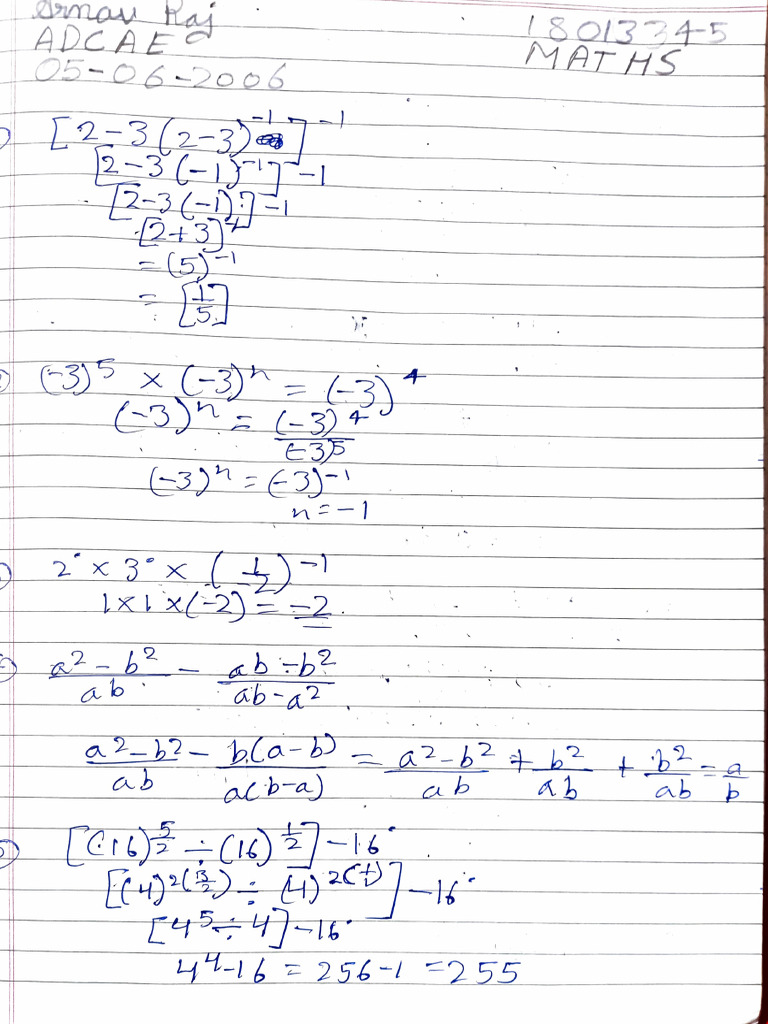 Arnav Raj
1801334-5
ADCAE
MATHS
05-06-2006
[2-3(2-3)⁻¹]⁻¹
[2-3(-1)⁻¹]⁻¹
[2-3(-1)]⁻¹
[2+3]⁻¹
= (5)⁻¹
= [1/5]
(-3)⁵ × (-3)ⁿ = (-3)⁴
(-3)ⁿ = (-3)⁴/(-3)⁵
(-3)ⁿ = (-3)⁻¹
n = -1
2° × 3° × (1/-2)⁻¹
1×1×(-2) = -2
(a²-b²)/ab - (ab-b²)/(ab-a²)
(a²-b²)/ab - b(a-b)/a(b-a) = (a²-b²)/ab + b²/ab + b²/ab = a/b
[(16)^(5/2) ÷ (16)^(1/2)] - 16°
[(4)^2(5/2) ÷ (4)^2(1/1)] - 16°
[4⁵ ÷ 4] - 16°
4⁴-16 = 256-1 = 255